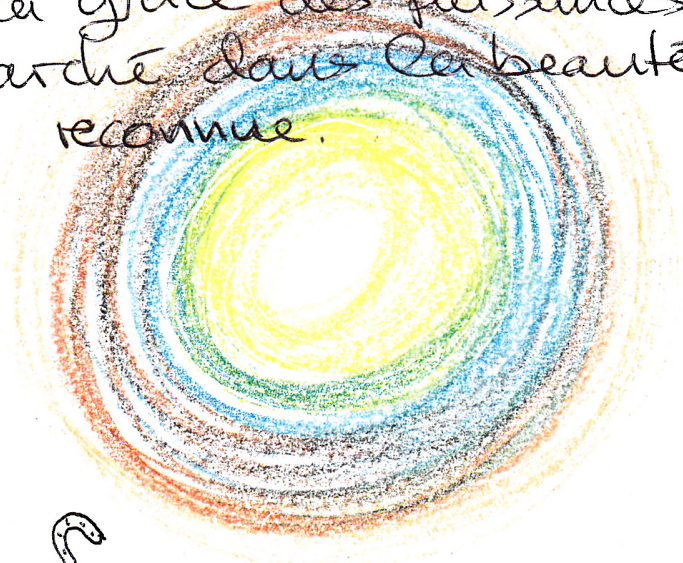 la grâce des puissances
arché dans la beauté
reconnue.